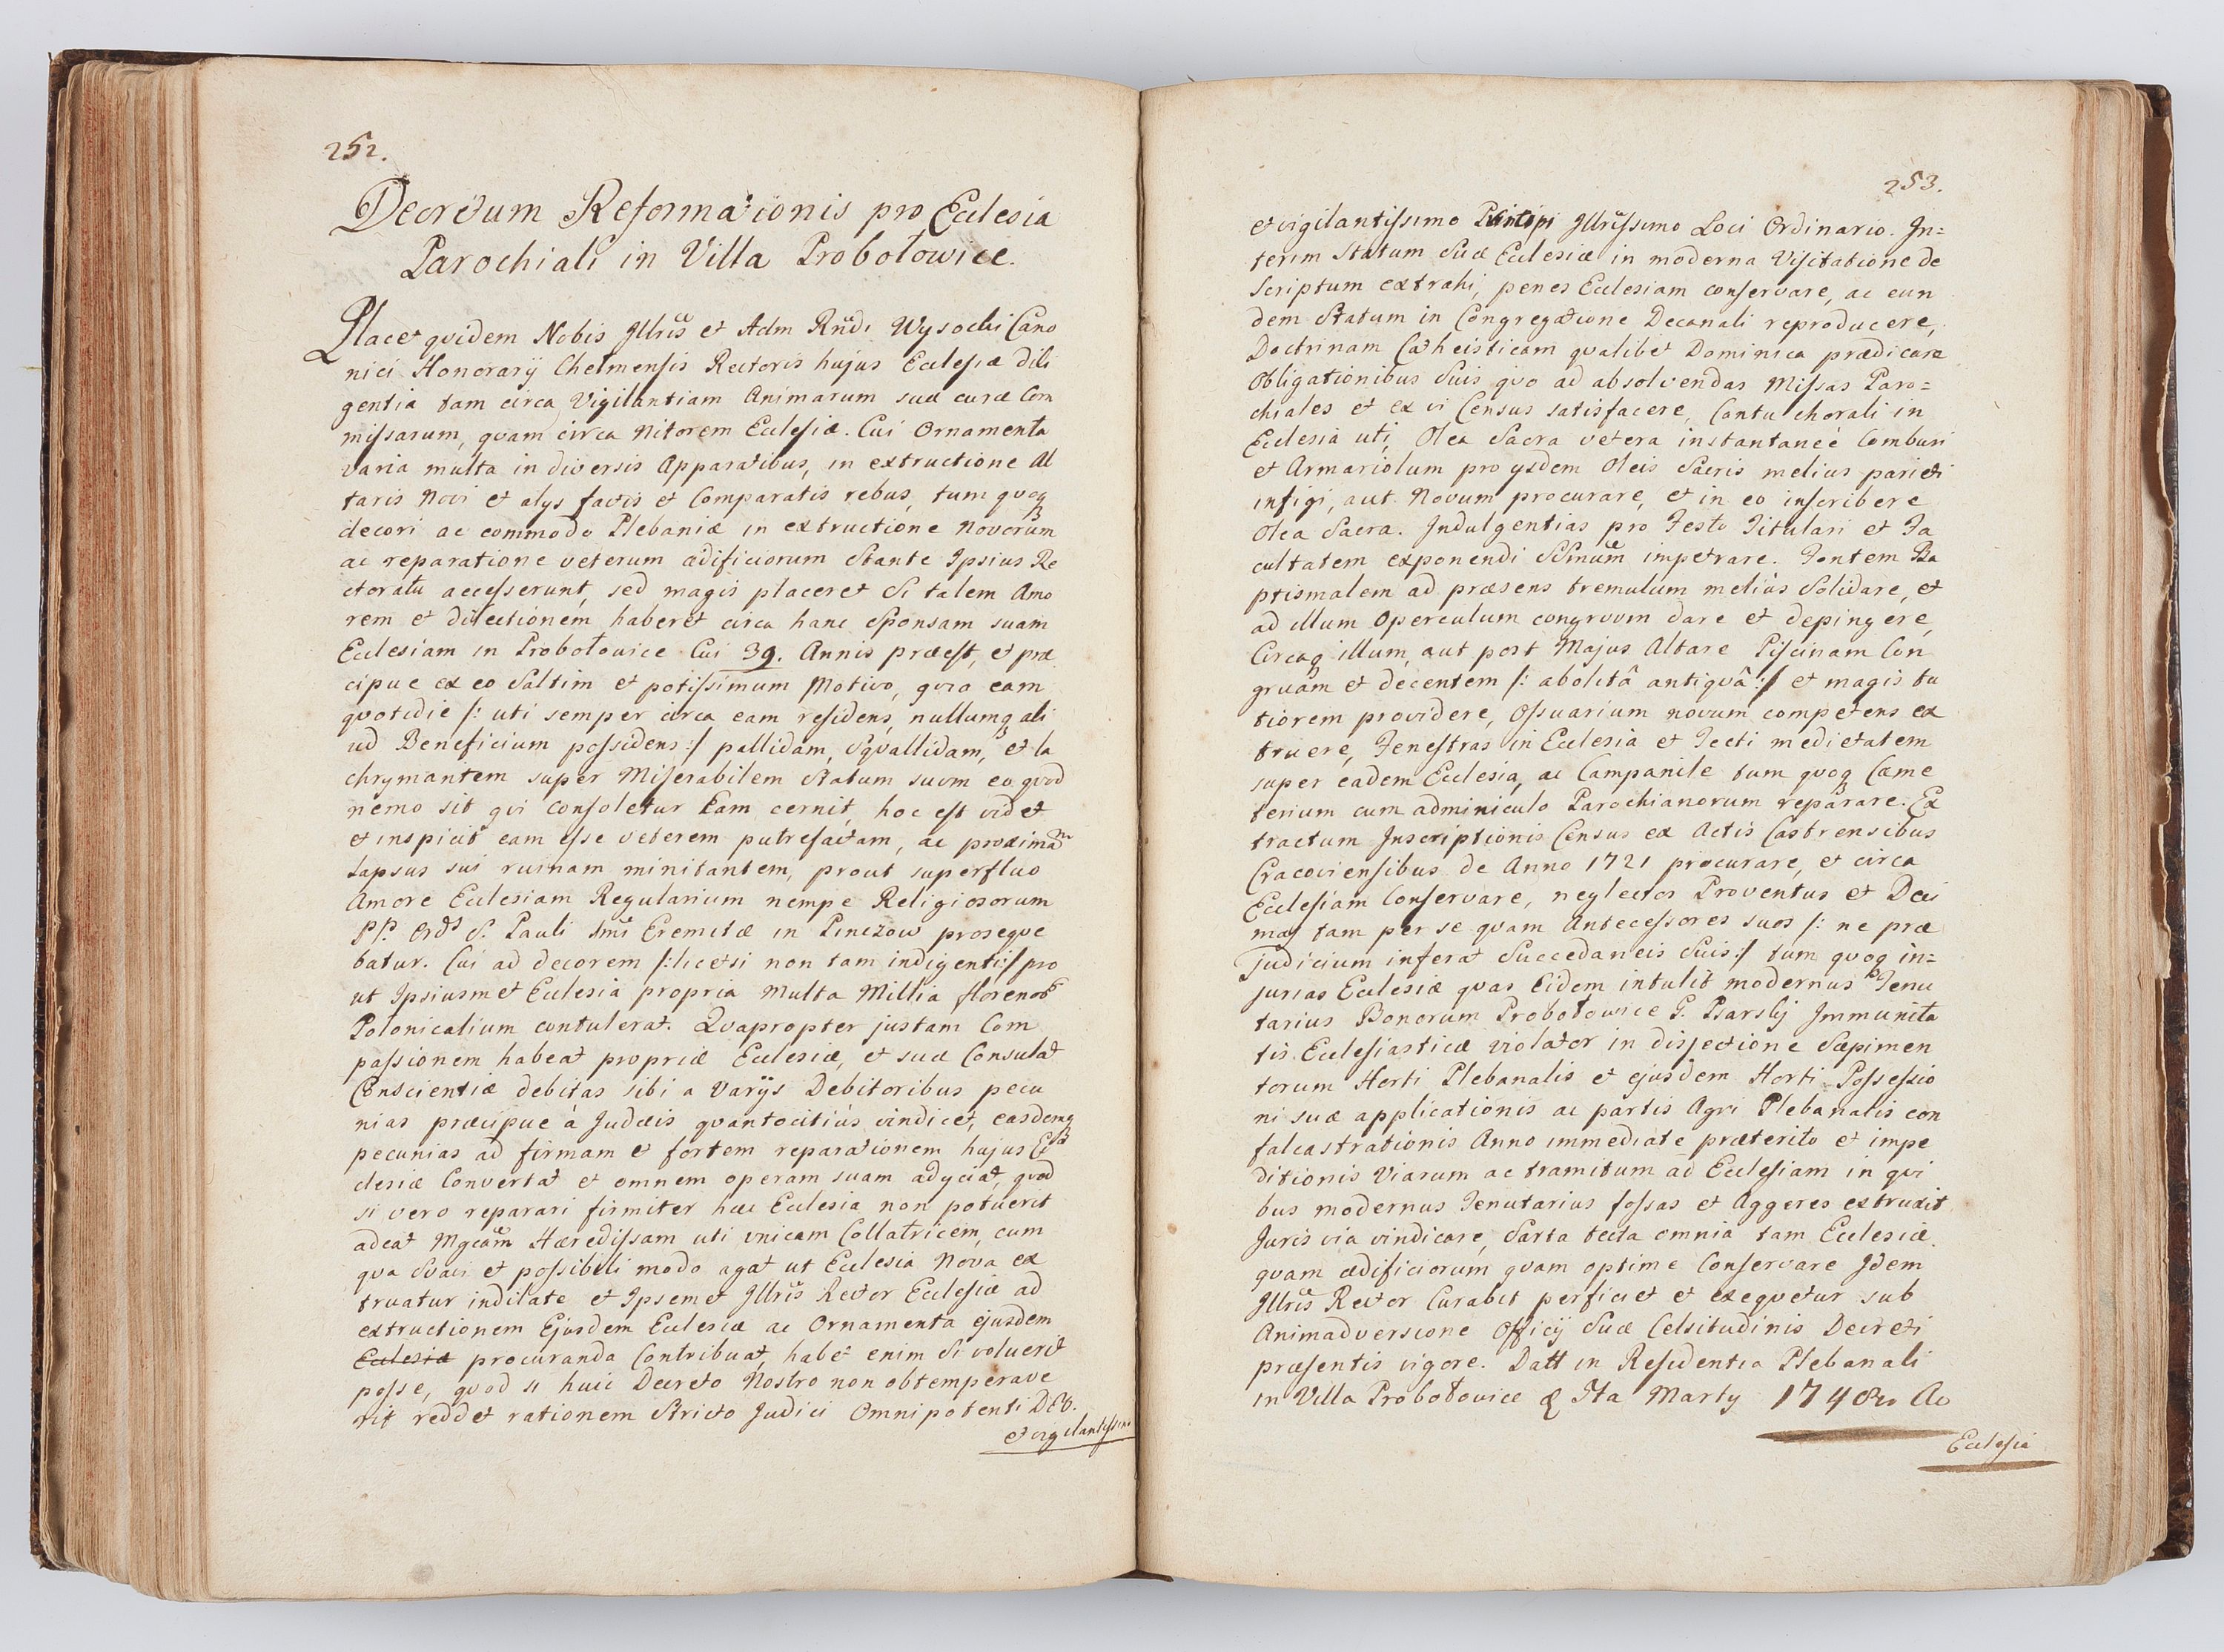 252.
Decretum Reformationis pro Ecclesia
Parochiali in Villa Probołowice.
Placet qvidem Nobis Jllris et Adm Rndi Wysocki Cano
nici Honorarÿ Chelmensis Rectoris hujus Ecclesiæ dili
gentia tam circa Vigilantiam Animarum suæ curæ Com
missarum, qvam circa Nitorem Ecclesiæ. Cui Ornamenta
varia multa in diversis Apparatibus, in extructione Al
taris Novi et alys factis et Comparatis rebus, tum qvoq
decori ac commodo Plebaniæ in extructione Noverum
ac reparatione veterum ædificiorum Stante Ipsius Re
ctoratu accesserunt, sed magis placeret Si talem Amo
rem et dilectionem haberet circa hanc Sponsam suam
Ecclesiam in Probołowice Cui 39. Annis præest, et præ
cipue ex eo Saltim et potissimum Motivo, qvia eam
qvotidie /: uti semper circa eam residens, nullumq ali
ud Beneficium possidens :/ pallidam, Sqvallidam, et la
chrymantem super Miserabilem Statum suum eo qvod
nemo sit qvi consoletur Eam cernit, hoc est videt
et inspicit eam esse veterem putrefactam, ac proximam
Lapsus sui ruinam minitantem, prout superfluo
Amore Ecclesiam Regularium nempe Religiosorum
PP. Ordis S. Pauli Imi Eremitæ in Pinczow proseqve
batur. Cui ad decorem /: licetsi non tam indigenti :/ pro
ut Ipsiusmet Ecclesia propria Multa Millia florenor
Polonicalium contulerat. Qvapropter justam Com
passionem habeat propriæ Ecclesiæ, et suæ Consulat
Conscientiæ debitas sibi a Varÿs Debitoribus pecu
nias præcipue à Judæis qvantocitiùs vindicet, easdemq
pecunias ad firmam et fortem reparationem hujus Ec
clesiæ Convertat et omnem operam suam adyciat, qvod
si vero reparari firmiter hæc Ecclesia non potuerit
adeat Mgcam Hæredissam uti unicam Collatricem, cum
qva Suaci et possibili modo agat ut Ecclesia Nova ex
truatur indilate et Ipsemet Jllris Rector Ecclesiæ ad
extructionem Ejusdem Ecclesiæ ac Ornamenta ejusdem
Ecclesiæ procuranda Contribuat, habet enim Si voluerit
posse, qvod si huic Decreto Nostro non obtemperave
rit reddet rationem Stricto Judici Omnipotenti DEO.
et vigilantissimo
253.
et vigilantissimo Principi Jllrissimo Loci Ordinario. In=
terim Statum Suæ Ecclesiæ in moderna Visitatione de
Scriptum extrahi, penes Ecclesiam conservare, ac eun
dem Statum in Congregatione Decanali reproducere,
Doctrinam Catheisticam qvalibet Dominica prædicare
Obligationibus Suis qvo ad absolvendas Missas Paro=
chiales et ex vi Census satisfacere, Cantu chorali in
Ecclesia uti, Olea Sacra vetera instantaneè Comburi
et Armariolum pro ysdem Oleis Sacris melius parieti
infigi, aut Novum procurare, et in eo inscribere
Olea Sacra. Indulgentias pro Festo Titulari et Fa
cultatem exponendi SSmum impetrare. Fontem Ba
ptismalem ad præsens tremulum meliùs Solidare, et
ad illum Operculum congruum dare et depingere,
Circaq illum, aut post Majus Altare Piscinam Con
gruam et decentem /: abolitâ antiqvâ :/ et magis tu
tiorem providere, Ossuarium novum competens ex
truere, Fenestras in Ecclesia et Tecti medietatem
super eadem Ecclesia, ac Campanile tum qvoq Cæme
terium cum adminiculo Parochianorum reparare. Ex
tractum Inscriptionis Census ex Actis Castrensibus
Cracoviensibus de Anno 1721 procurare, et circa
Ecclesiam Conservare, neglectos Proventus et Deci
mas tam per se qvam Antecessores suos /: ne præ
judicium inferat Succedaneis Suis :/ tum qvoq in=
jurias Ecclesiæ qvas Eidem intulit modernus Tenu
tarius Bonorum Probołowice G. Psarsky Immunita
tis Ecclesiasticæ violator in disjectione Sæpimen
torum Horti Plebanalis et ejusdem Horti Possessio
ni suæ applicationis ac partis Agri Plebanalis con
falcastrationis Anno immediate præterito et impe
ditionis Viarum ac tramitum ad Ecclesiam in qvi
bus modernus Tenutarius fossas et Aggeres extruxit
Juris via vindicare, Sarta tecta omnia tam Ecclesiæ
qvam ædificiorum qvam optime Conservare Idem
Jllris Rector Curabit perficiet et exeqvetur sub
Animadversione Officÿ Suæ Celsitudinis Decreti
præsentis vigore. Datt in Residentia Plebanali
in Villa Probołowice Ita Marty 1748vo Ao
Ecclesia